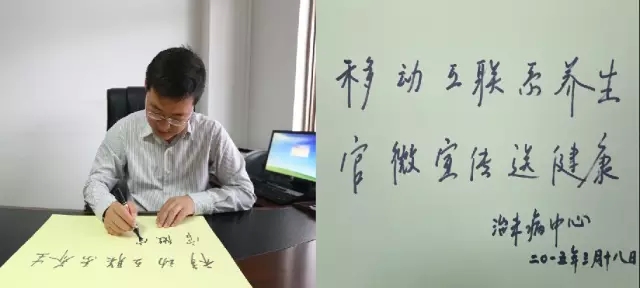 移动互联系养生
官微宣传送健康
治未病中心
二〇一五年三月十八日
移动互联系养生
官微宣